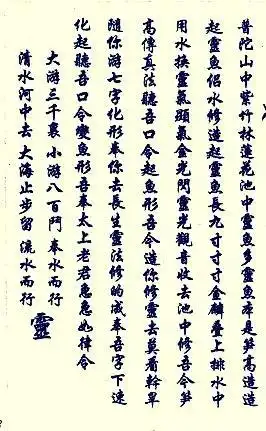 普陀山中紫竹林蓮花池中靈魚多靈魚本是笋高造造
起靈魚侶水修造起靈魚長九寸寸寸金麟叠上排水中
用水挾靈氣顯氣金光閃靈光觀音收去池中修吾令笋
高傳真法聽吾口令起魚形吾今造你修靈去莫看幹旱
隨你游七字化形奉你去長生靈法修的成奉吾字下速
化起聽吾口令變魚形吾奉太上老君急急如律令
大游三千裏 小游八百門 奉水而行
清水河中去 大海止步留 流水而行
靈